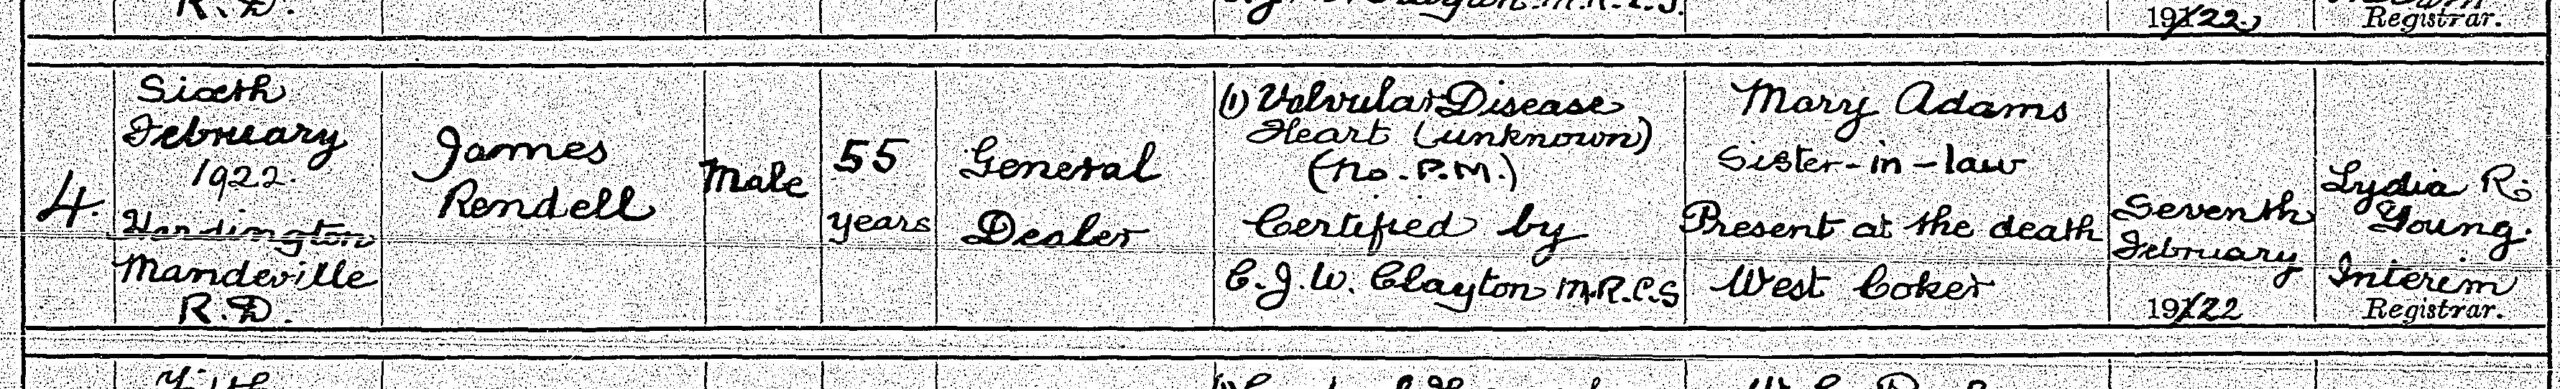 R.D.
1922
Registrar.
4.
Sixth
February
1922.
Hardington
Mandeville
R.D.
James
Rendell
Male
55
years
General
Dealer
(1) Valvular Disease
Heart (unknown)
(No. P.M.)
Certified by
C.J.W. Clayton M.R.C.S
Mary Adams
Sister-in-law
Present at the death
West Coker
Seventh
February
1922
Lydia R.
Young.
Interim
Registrar.